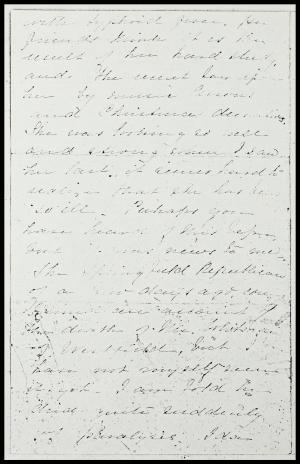 with typhoid fever. Her
friends think it is the
result of her hard study,
and the recent tax upon
her by music lessons
and Christmas decorations.
She was looking so well
and strong when I saw
her last, it seems hard to
realize that she has been
so ill. Perhaps you
have heard of this before,
but it was news to me.
The Springfield Republican
of a few days ago, con-
an account of
the death of Mr.
of Westfield, but I
have not myself seen
it yet. I am told he
died quite suddenly
of paralysis. I do